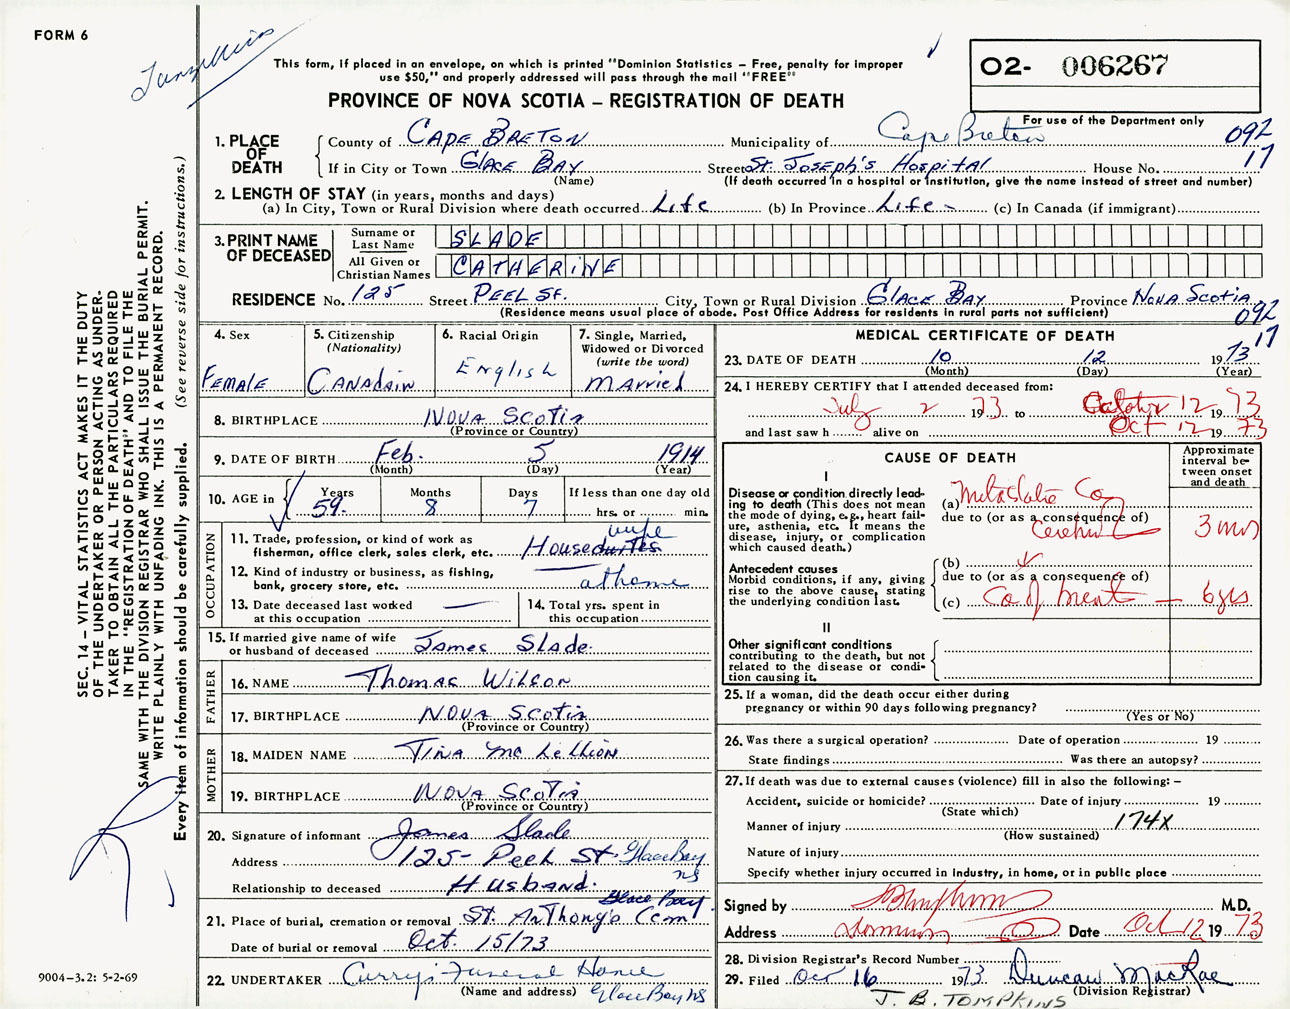 FORM 6
This form, if placed in an envelope, on which is printed "Dominion Statistics – Free, penalty for improper
use $50," and properly addressed will pass through the mail "FREE"
O2- 006267
PROVINCE OF NOVA SCOTIA – REGISTRATION OF DEATH
For use of the Department only
092
17
1. PLACE OF DEATH
County of CAPE BRETON Municipality of Cape Breton
If in City or Town GLACE BAY Street St. JOSEPH'S HOSPITAL House No.
(Name) (If death occurred in a hospital or institution, give the name instead of street and number)
2. LENGTH OF STAY (in years, months and days)
(a) In City, Town or Rural Division where death occurred Life (b) In Province Life - (c) In Canada (if immigrant)
3. PRINT NAME OF DECEASED
Surname or Last Name SLADE
All Given or Christian Names CATHERINE
RESIDENCE No. 125 Street PEEL St. City, Town or Rural Division GLACE BAY Province NOVA SCOTIA
(Residence means usual place of abode. Post Office Address for residents in rural parts not sufficient)
092
17
4. Sex
FEMALE
5. Citizenship
(Nationality)
CANADAIN
6. Racial Origin
English
7. Single, Married,
Widowed or Divorced
(write the word)
MARRIED
8. BIRTHPLACE NOVA SCOTIA
(Province or Country)
9. DATE OF BIRTH Feb. 5 1914
(Month) (Day) (Year)
10. AGE in
Years Months Days If less than one day old
59. 8 7 hrs. or min.
OCCUPATION
11. Trade, profession, or kind of work as
fisherman, office clerk, sales clerk, etc. House wife
12. Kind of industry or business, as fishing,
bank, grocery store, etc. at home
13. Date deceased last worked
at this occupation —
14. Total yrs. spent in
this occupation
15. If married give name of wife
or husband of deceased James Slade.
FATHER
16. NAME Thomas Wilson
17. BIRTHPLACE NOVA SCOTIA
(Province or Country)
MOTHER
18. MAIDEN NAME TINA Mc Lellion
19. BIRTHPLACE NOVA SCOTIA
(Province or Country)
20. Signature of informant James Slade
Address 125- Peel St. Glace Bay
NS
Relationship to deceased Husband.
Glace Bay
21. Place of burial, cremation or removal St. Anthony's Cem
Date of burial or removal Oct. 15/73
22. UNDERTAKER Curry's Funeral Home
(Name and address) Glace Bay NS
MEDICAL CERTIFICATE OF DEATH
23. DATE OF DEATH 10 12 1973
(Month) (Day) (Year)
24. I HEREBY CERTIFY that I attended deceased from:
July 2 1973 to October 12 1973
and last saw h alive on Oct 12 1973
CAUSE OF DEATH
Approximate interval between onset and death
I
Disease or condition directly lead-
ing to death (This does not mean
the mode of dying, e.g., heart fail-
ure, asthenia, etc. It means the
disease, injury, or complication
which caused death.)
(a) Metastatic Ca
due to (or as a consequence of)
3 mos
Antecedent causes
Morbid conditions, if any, giving
rise to the above cause, stating
the underlying condition last.
(b)
due to (or as a consequence of)
(c) Ca of breast — 6 yrs
II
Other significant conditions
contributing to the death, but not
related to the disease or condi-
tion causing it.
25. If a woman, did the death occur either during
pregnancy or within 90 days following pregnancy?
(Yes or No)
26. Was there a surgical operation? Date of operation 19
State findings Was there an autopsy?
27. If death was due to external causes (violence) fill in also the following: –
Accident, suicide or homicide? Date of injury 19
(State which)
Manner of injury 174X
(How sustained)
Nature of injury
Specify whether injury occurred in industry, in home, or in public place
Signed by M.D.
Address Dominion Date Oct 12 1973
28. Division Registrar's Record Number
29. Filed Oct 16 1973 Duncan MacRae
(Division Registrar)
J. B. TOMPKINS
SEC. 14 – VITAL STATISTICS ACT MAKES IT THE DUTY
OF THE UNDERTAKER OR PERSON ACTING AS UNDER-
TAKER TO OBTAIN ALL THE PARTICULARS REQUIRED
IN THE "REGISTRATION OF DEATH" AND TO FILE THE
SAME WITH THE DIVISION REGISTRAR WHO SHALL ISSUE THE BURIAL PERMIT.
WRITE PLAINLY WITH UNFADING INK. THIS IS A PERMANENT RECORD.
Every item of information should be carefully supplied. (See reverse side for instructions.)
9004-3.2: 5-2-69